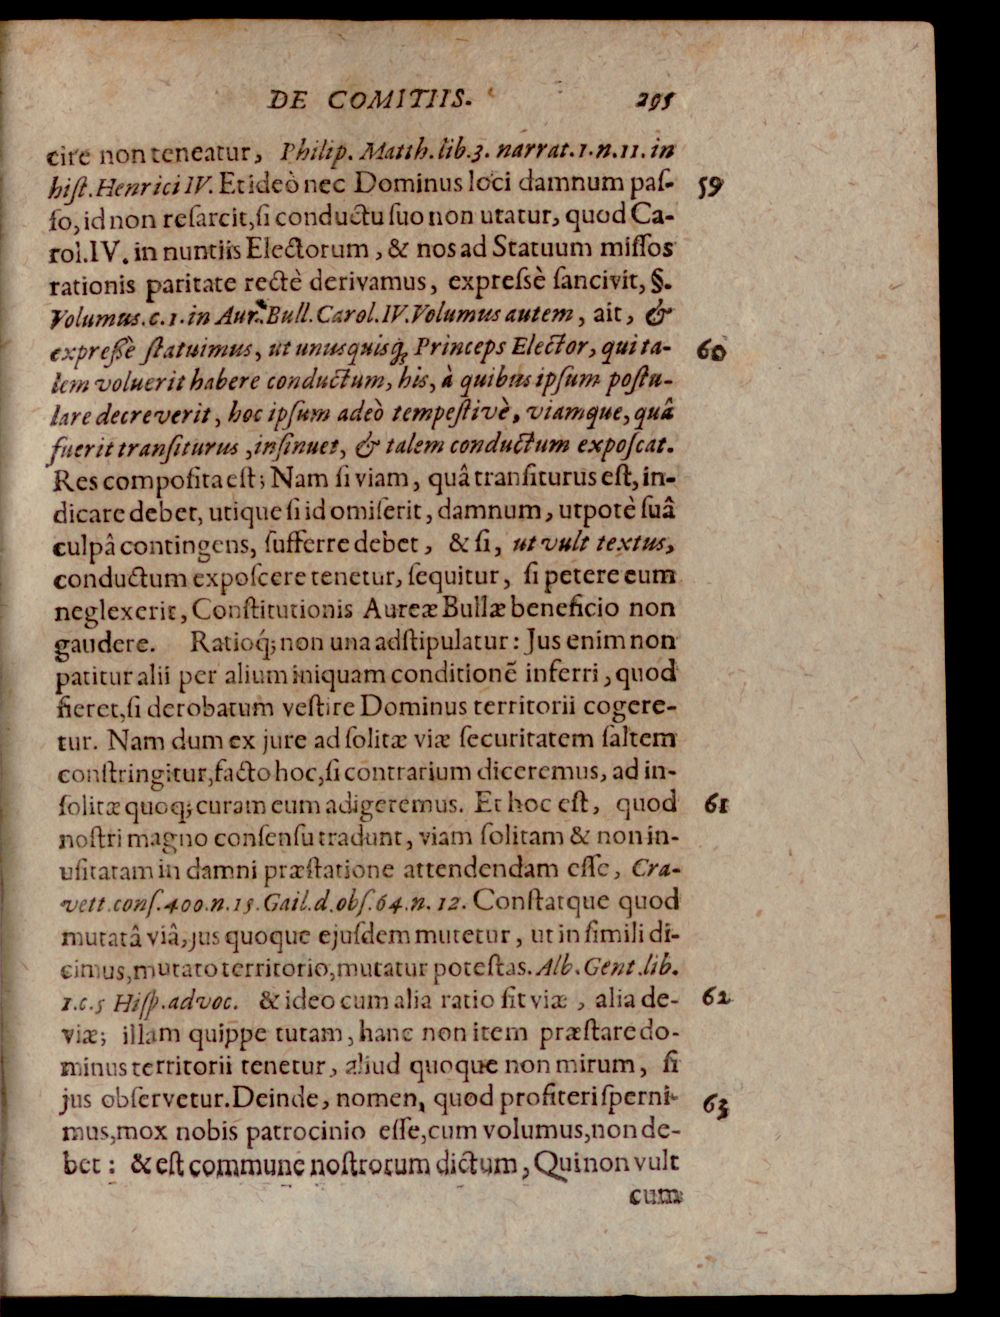 DE COMITIIS. 295
cire non teneatur, Philip. Matth. lib. 3. narrat. 1. n. 11. in
hiſt. Henrici IV. Et ideò nec Dominus loci damnum paſ- 59
ſo, id non reſarcit, ſi conductu ſuo non utatur, quod Ca-
rol. IV. in nuntiis Electorum, & nos ad Statuum miſſos
rationis paritate rectè derivamus, expreſsè ſancivit, §.
Volumus. c. 1. in Aur. Bull. Carol. IV. Volumus autem, ait, &
expreſſè ſtatuimus, ut unusquisq́; Princeps Elector, qui ta- 60
lem voluerit habere conductum, his, à quibus ipſum poſtu-
lare decreverit, hoc ipſum adeò tempeſtivè, viamque, quâ
fuerit tranſiturus, inſinuet, & talem conductum expoſcat.
Res compoſita eſt; Nam ſi viam, quâ tranſiturus eſt, in-
dicare debet, utique ſi id omiſerit, damnum, utpotè ſuâ
culpâ contingens, ſufferre debet, & ſi, ut vult textus,
conductum expoſcere tenetur, ſequitur, ſi petere eum
neglexerit, Conſtitutionis Aureæ Bullæ beneficio non
gaudere. Ratioq́; non una adſtipulatur: Jus enim non
patitur alii per alium iniquam conditionẽ inferri, quod
fieret, ſi derobatum veſtire Dominus territorii cogere-
tur. Nam dum ex jure ad ſolitæ viæ ſecuritatem ſaltem
conſtringitur, facto hoc, ſi contrarium diceremus, ad in-
ſolitæ quoq; curam eum adigeremus. Et hoc eſt, quod 61
noſtri magno conſenſu tradunt, viam ſolitam & non in-
uſitatam in damni præſtatione attendendam eſſe, Cra-
vett. conſ. 400. n. 15. Gail. d. obſ. 64. n. 12. Conſtatque quod
mutatâ viâ, jus quoque ejuſdem mutetur, ut in ſimili di-
cimus, mutato territorio, mutatur poteſtas. Alb. Gent. lib.
1. c. 5 Hiſp. advoc. & ideo cum alia ratio ſit viæ, alia de- 62
viæ; illam quippe tutam, hanc non item præſtare do-
minus territorii tenetur, aliud quoque non mirum, ſi
jus obſervetur. Deinde, nomen, quod profiteri ſperni- 63
mus, mox nobis patrocinio eſſe, cum volumus, non de-
bet: & eſt commune noſtrorum dictum, Qui non vult
cum